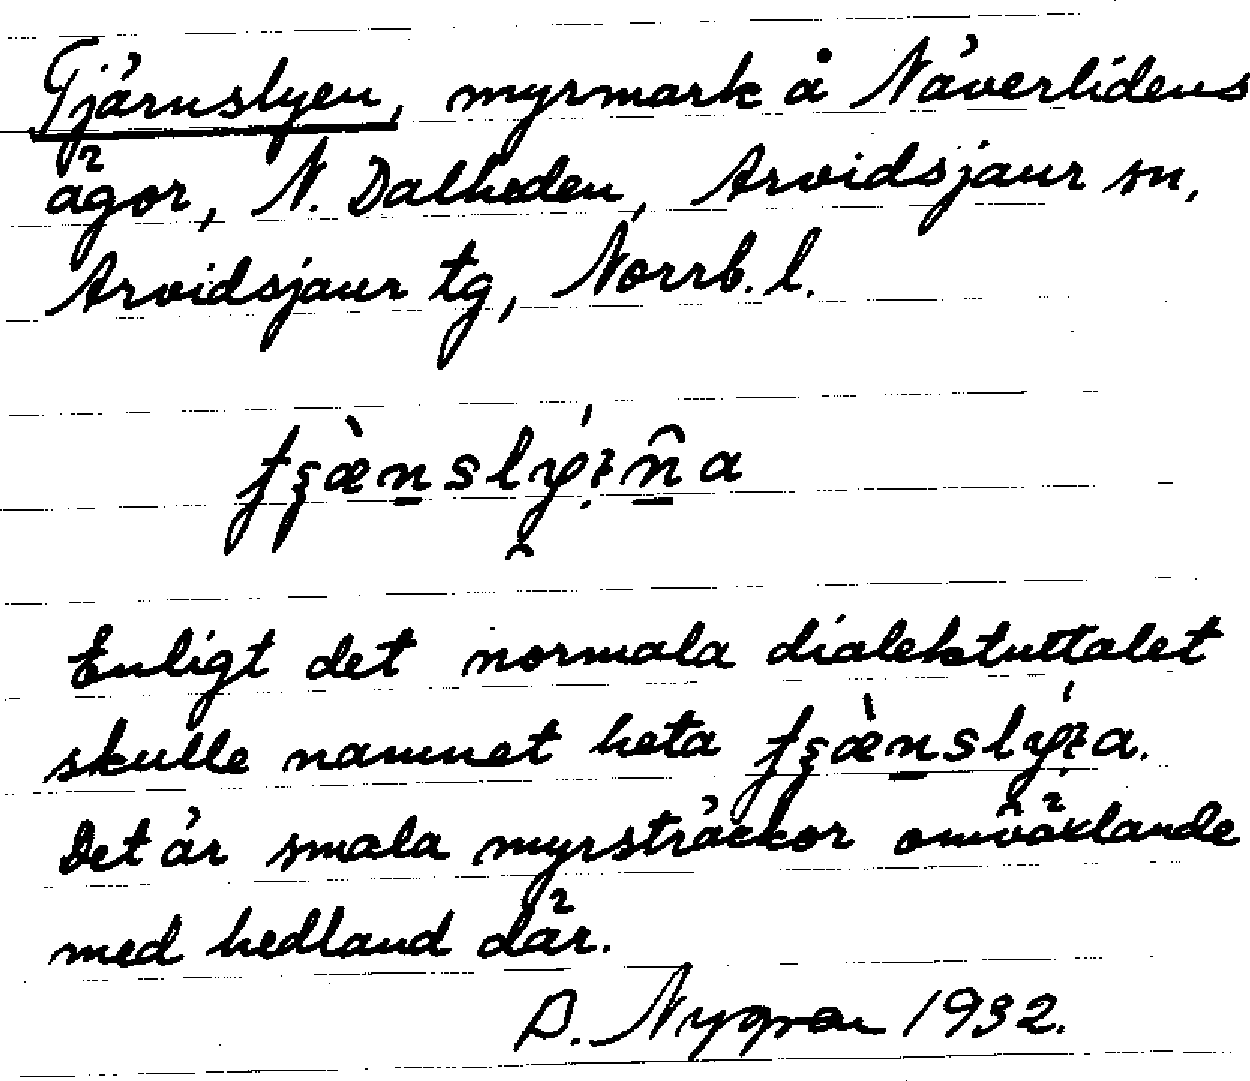 Tjärnslyen, myrmark å Näverlidens
ägor, N. Dalheden, Arvidsjaur sn,
Arvidsjaur tg, Norrb. l.
Enligt det normala dialektuttalet
skulle namnet heta
Det är smala myrsträckor omväxlande
med hedland där.
D. Nygren 1932.